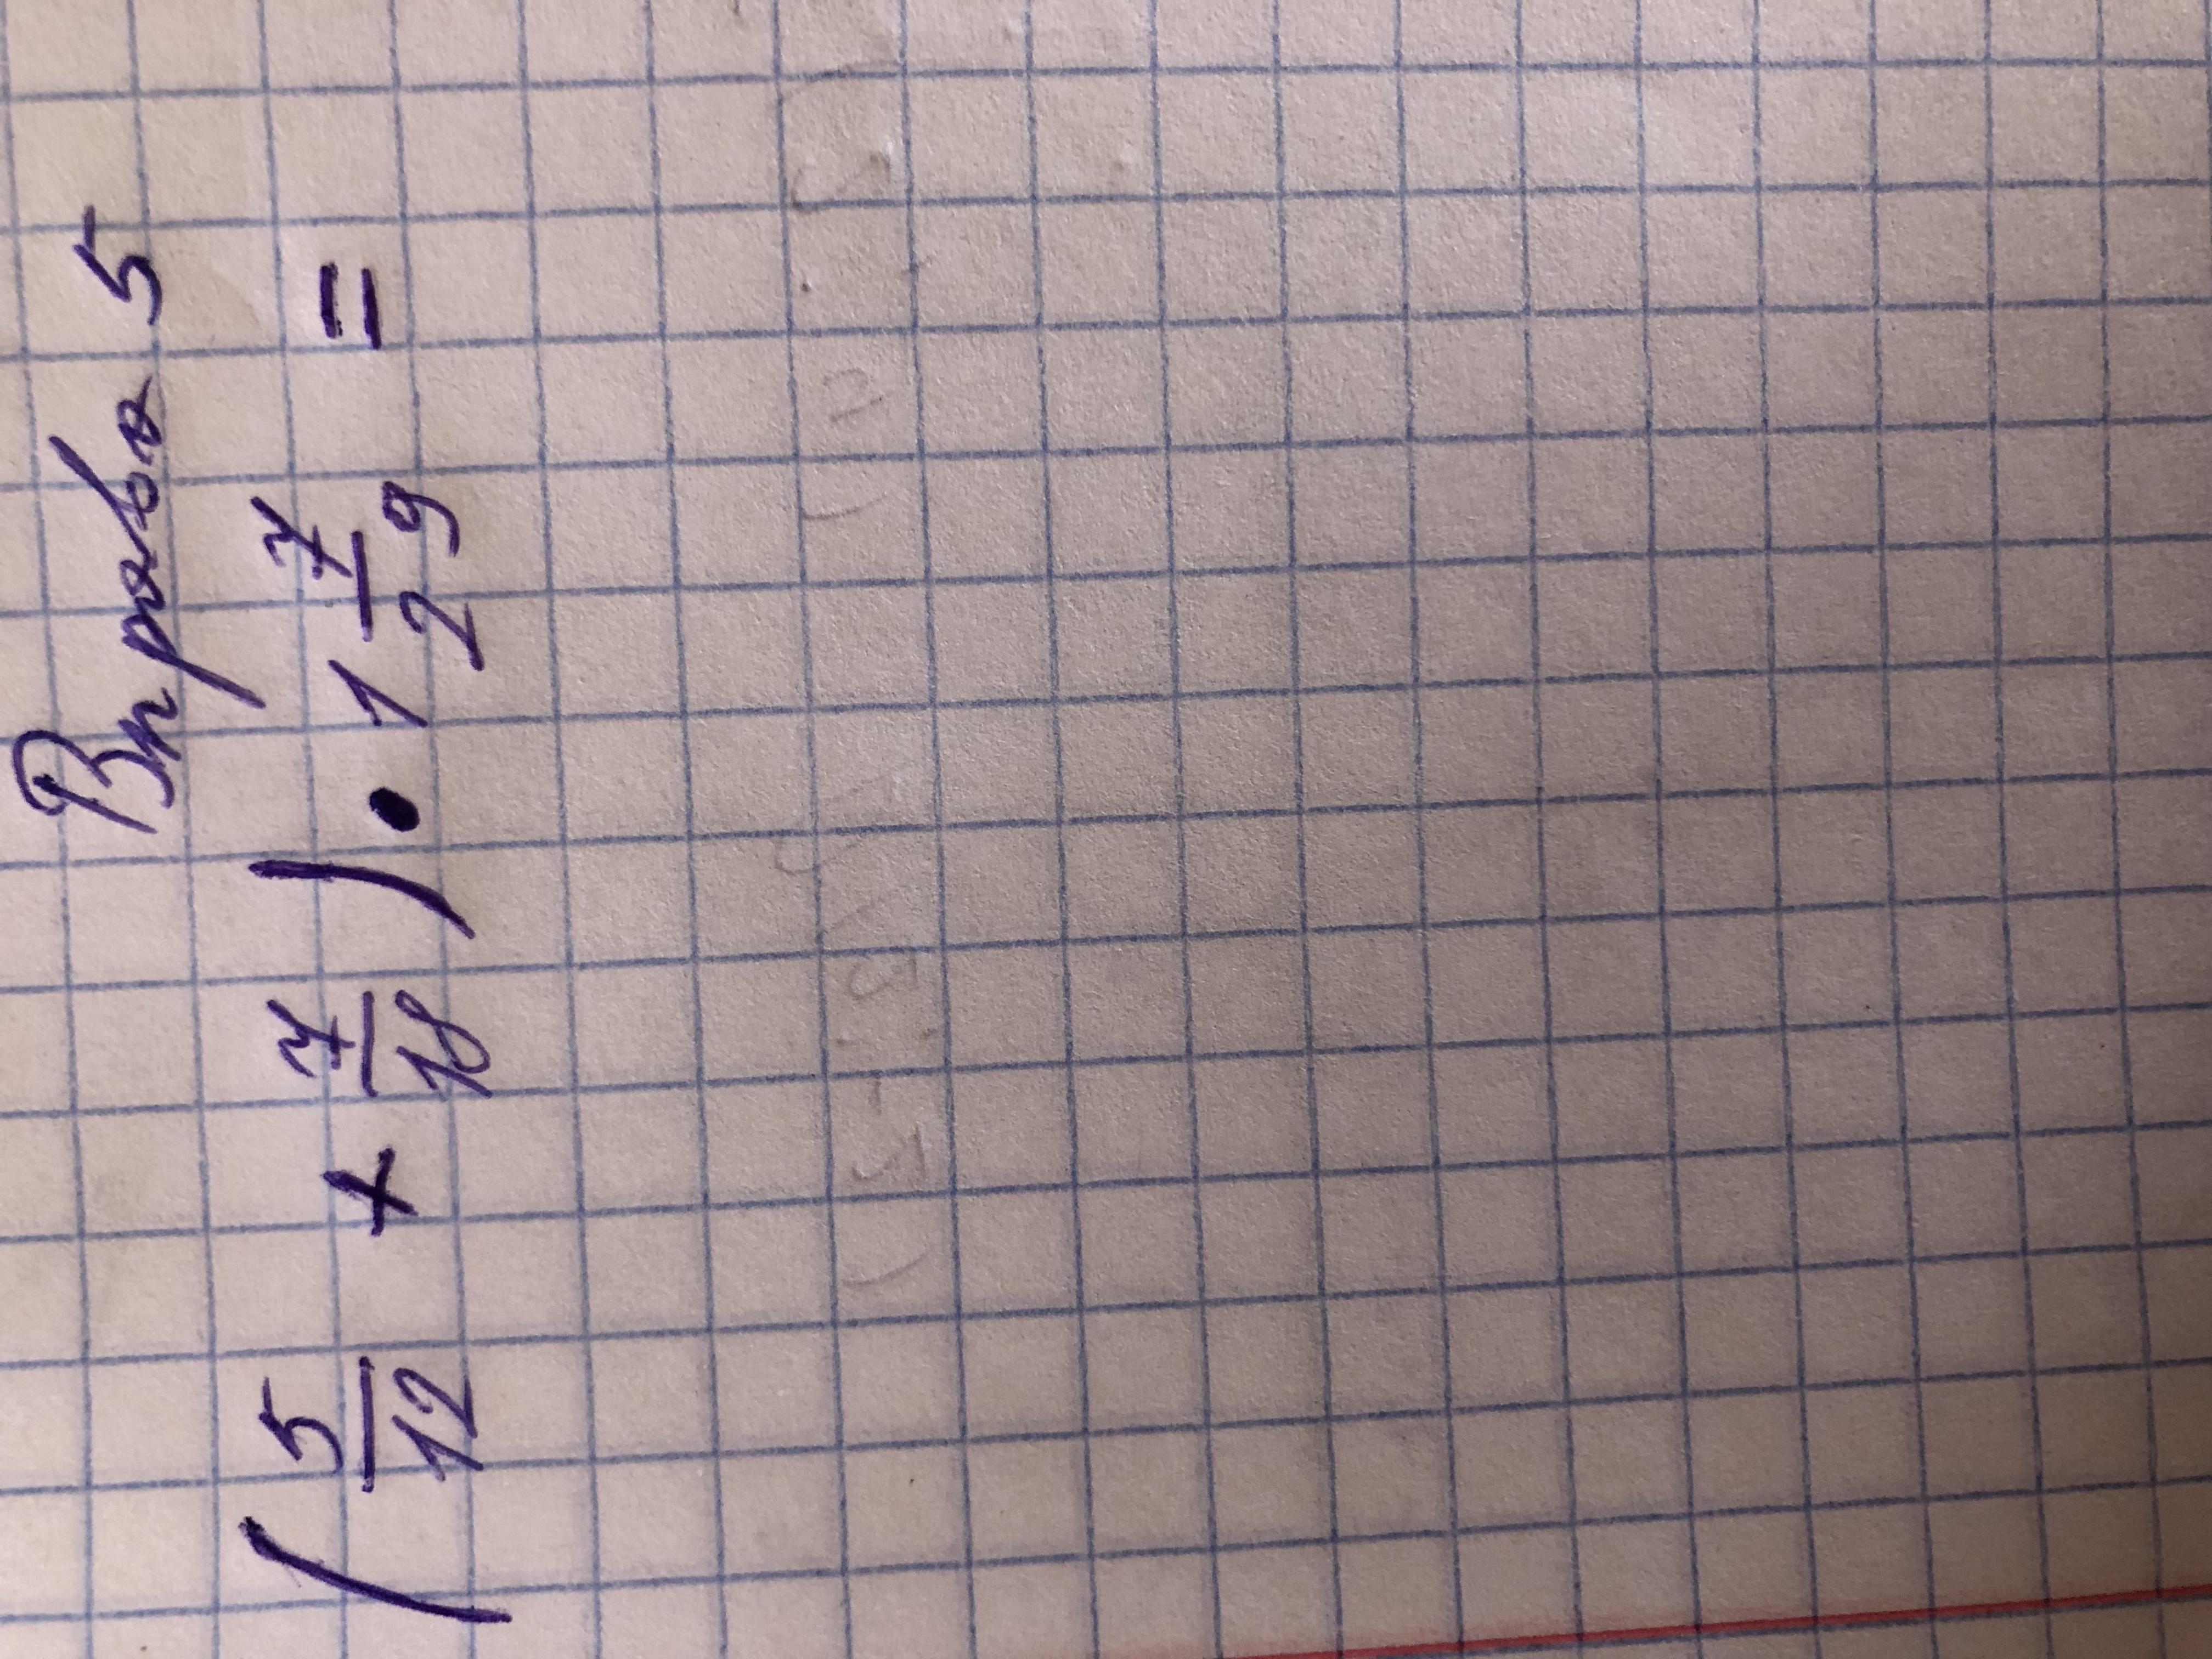 Вправа 5
( 5/12 + 7/18 ) • 1 7/29 =